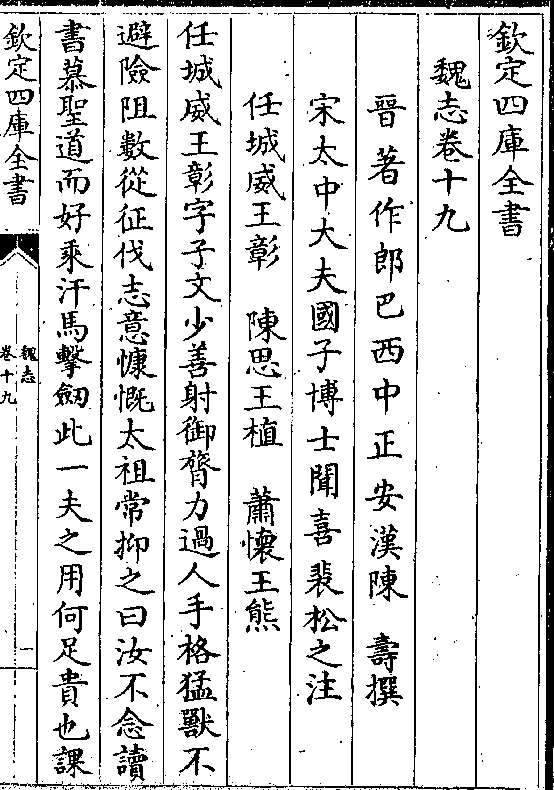 欽定四庫全書
魏志卷十九
晉著作郎巴西中正安漢陳 壽撰
宋太中大夫國子博士聞喜裴松之注
任城威王彰 陳思王植 蕭懷王熊
任城威王彰字子文少善射御膂力過人手格猛獸不
避險阻數從征伐志意慷慨太祖常抑之曰汝不念讀
書慕聖道而好乘汗馬擊劒此一夫之用何足貴也課
欽定四庫全書
魏志
卷十九
一